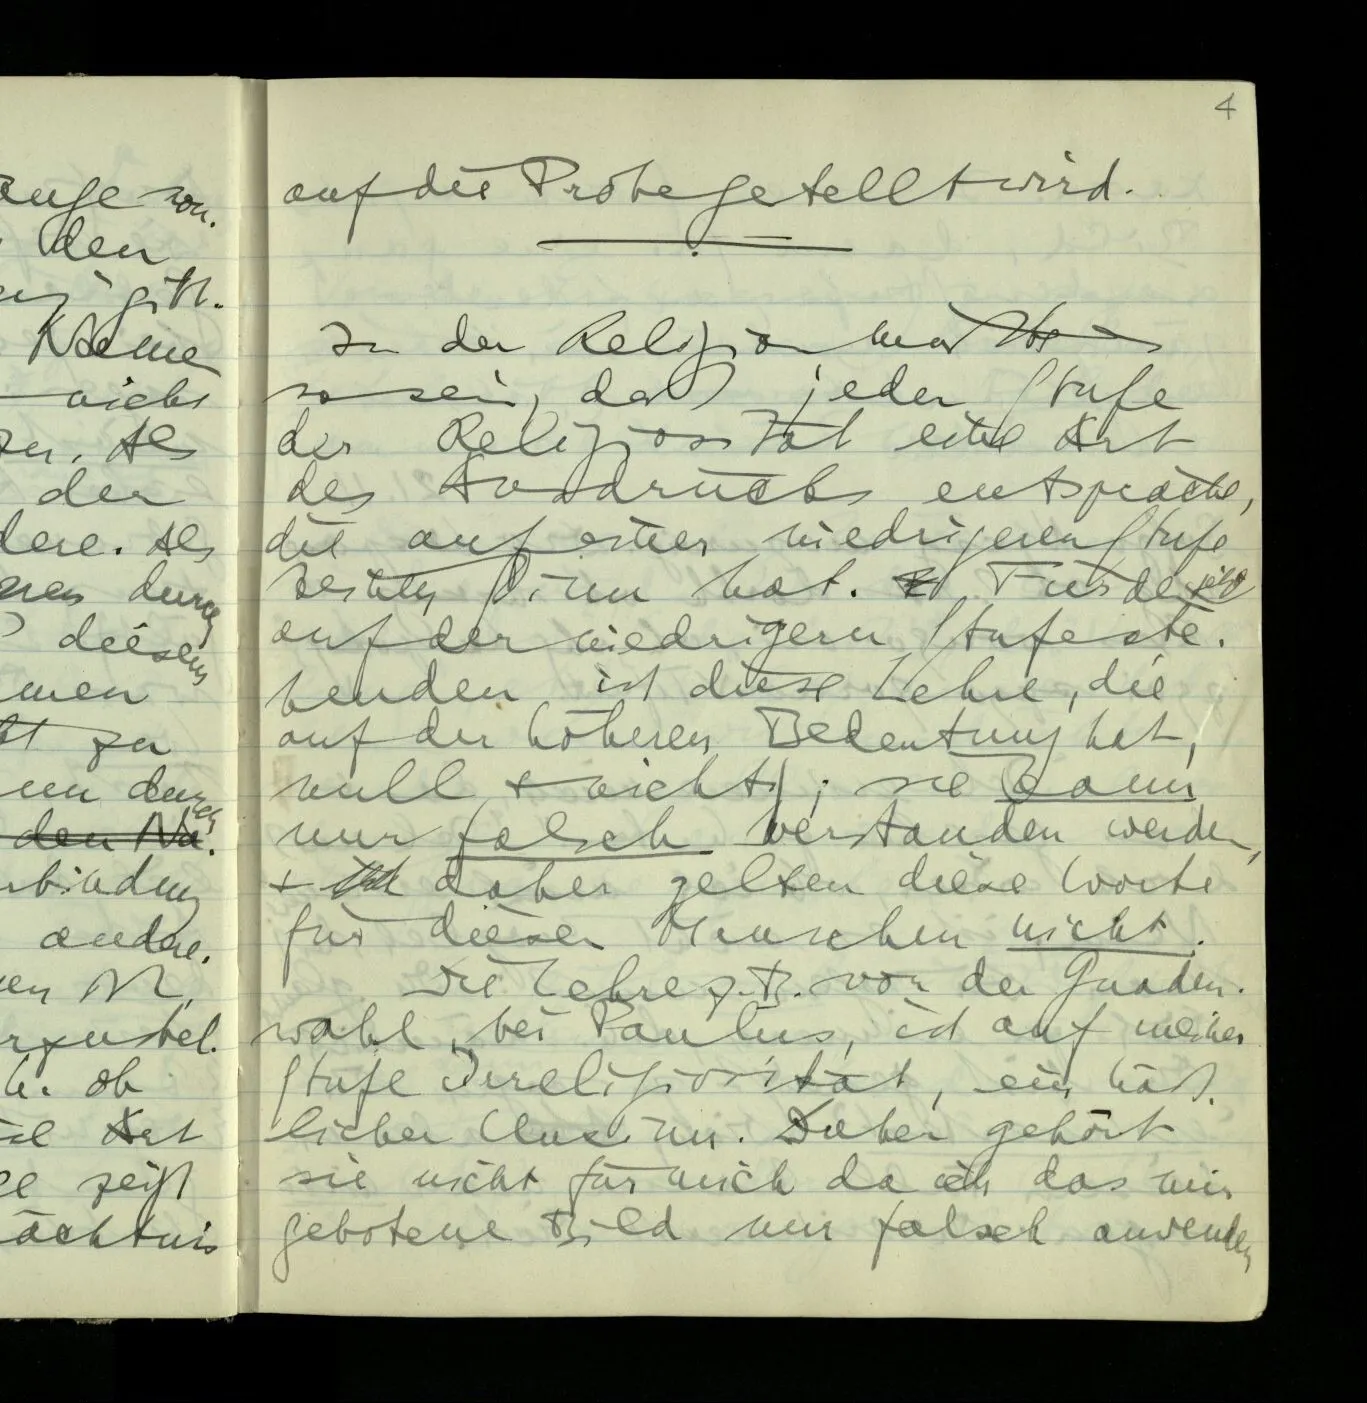 4
auf die Probe gestellt wird.
In der Religion müßte es
so sein, daß jeder Stufe
der Religiosität eine Art
des Ausdrucks entspräche,
die auf einer niedrigeren Stufe
keinen Sinn hat. Für den jetzt
auf der niedrigern Stufe ste-
henden ist diese Lehre, die
auf der höheren Bedeutung hat,
null & nichtig; sie kann
nur falsch verstanden werden,
& daher gelten diese Worte
für diesen Menschen nicht.
Die Lehre z.B. von der Gnaden-
wahl, bei Paulus, ist auf meiner
Stufe Irreligiosität, ein häß-
licher Unsinn. Daher gehört
sie nicht für mich da ich das mir
gebotene Bild nur falsch anwenden
den
gilt.
Kleine
nicht
Als
der
Als
durch
diesem
zu
durch
den Na-
andere.
M,
ob
Art
zeigt